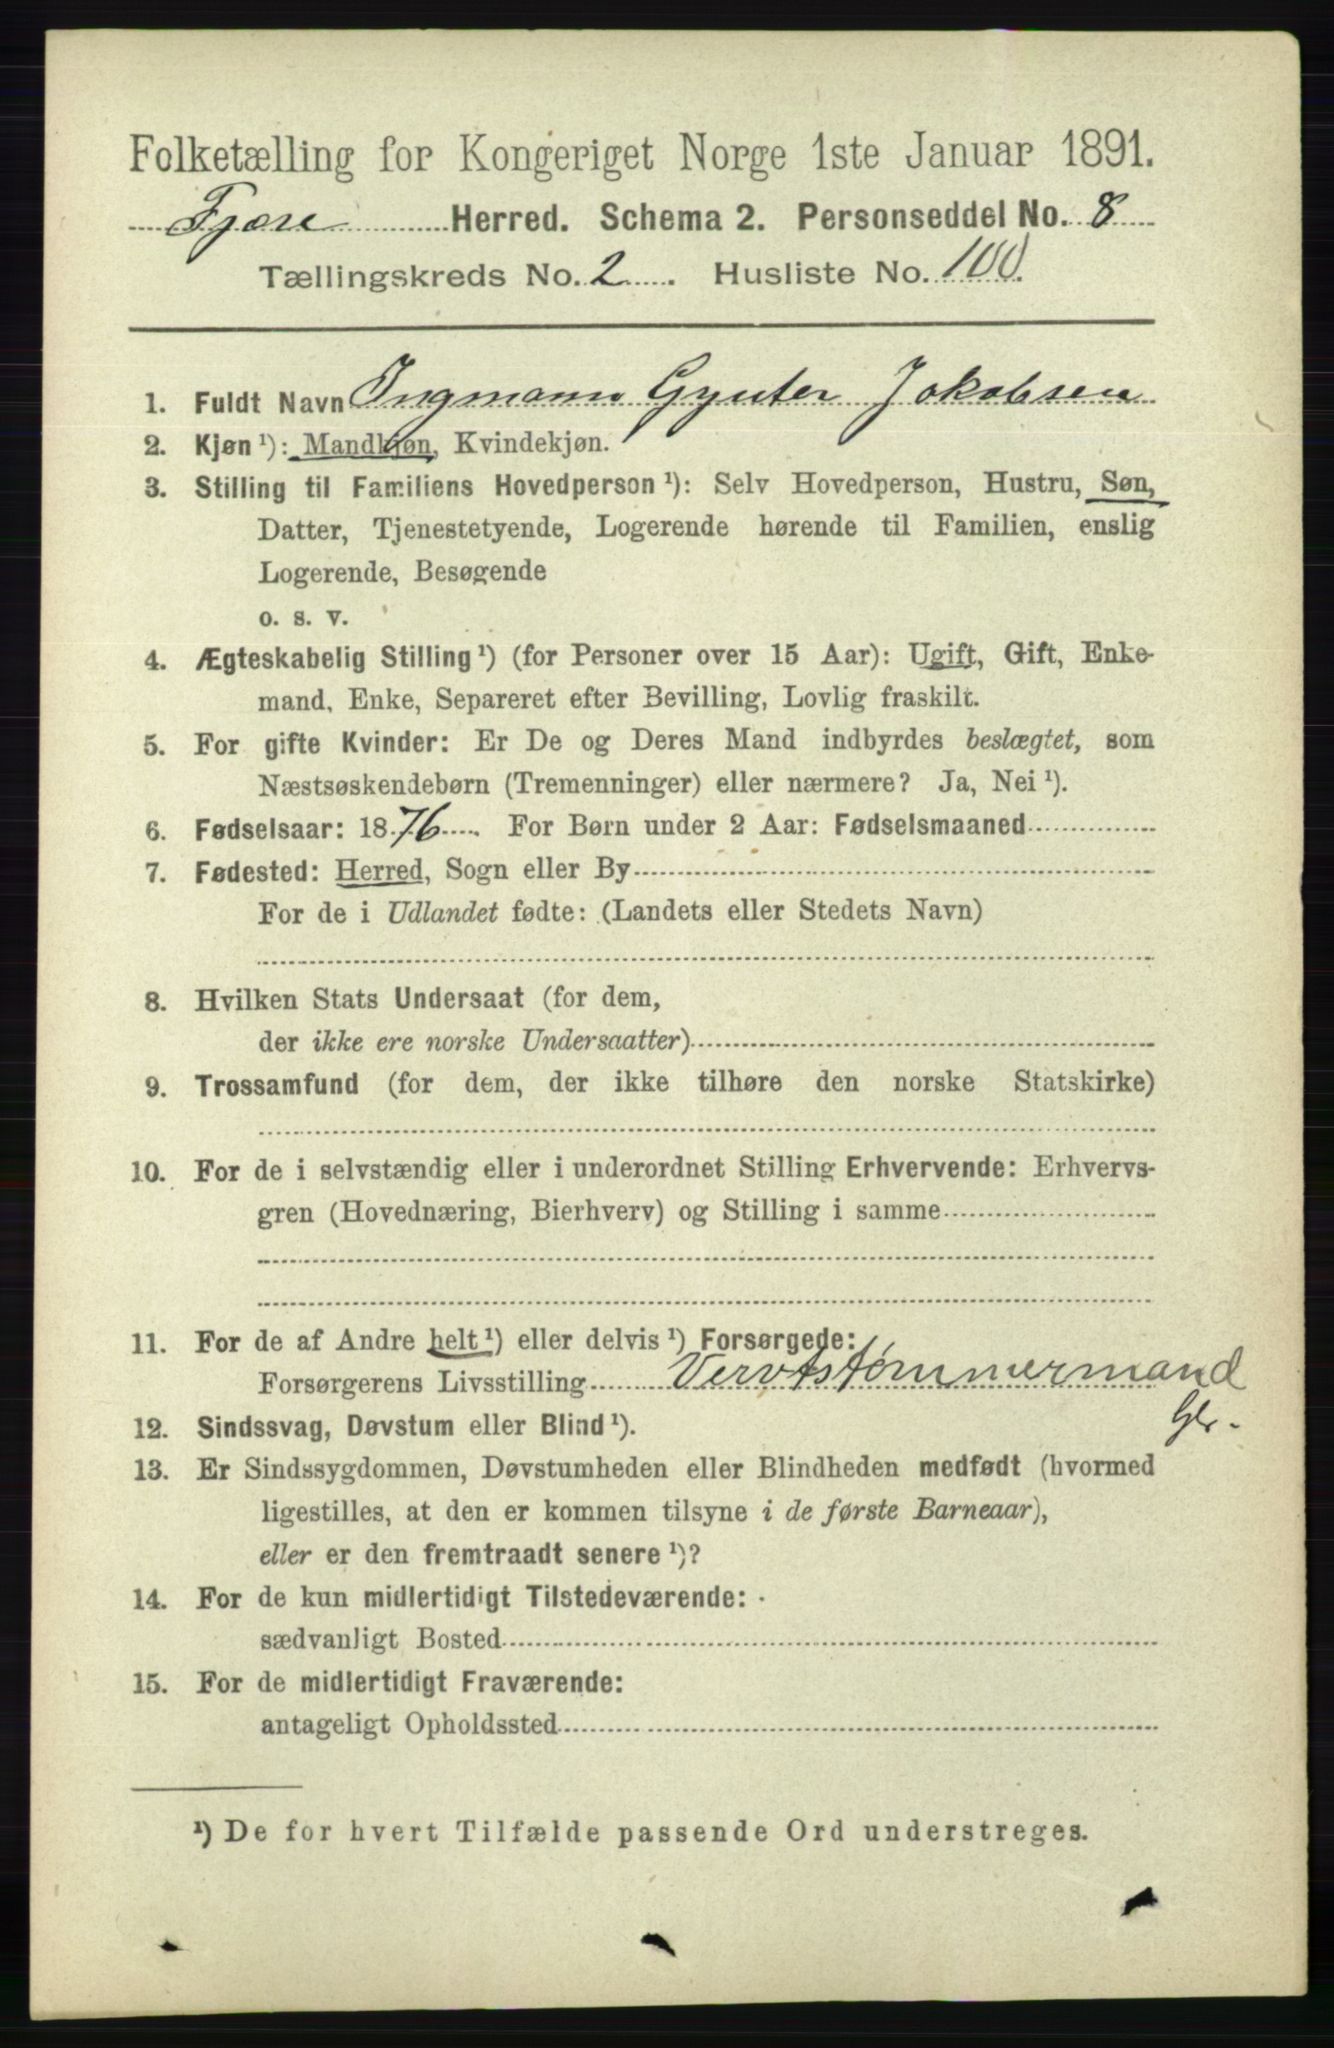 Folketælling for Kongeriget Norge 1ste Januar 1891.
Fjære Herred. Schema 2. Personseddel No. 8
Tællingskreds No. 2. Husliste No. 100.
1. Fuldt Navn Ingmann Gynter Jakobsen
2. Kjøn ¹): Mandkjøn, Kvindekjøn.
3. Stilling til Familiens Hovedperson ¹): Selv Hovedperson, Hustru, Søn,
Datter, Tjenestetyende, Logerende hørende til Familien, enslig
Logerende, Besøgende
o. s. v.
4. Ægteskabelig Stilling ¹) (for Personer over 15 Aar): Ugift, Gift, Enke-
mand, Enke, Separeret efter Bevilling, Lovlig fraskilt.
5. For gifte Kvinder: Er De og Deres Mand indbyrdes beslægtet, som
Næstsøskendebørn (Tremenninger) eller nærmere? Ja, Nei ¹).
6. Fødselsaar: 1876. For Børn under 2 Aar: Fødselsmaaned
7. Fødested: Herred, Sogn eller By
For de i Udlandet fødte: (Landets eller Stedets Navn)
8. Hvilken Stats Undersaat (for dem,
der ikke ere norske Undersaatter)
9. Trossamfund (for dem, der ikke tilhøre den norske Statskirke)
10. For de i selvstændig eller i underordnet Stilling Erhvervende: Erhvervs-
gren (Hovednæring, Bierhverv) og Stilling i samme
11. For de af Andre helt ¹) eller delvis ¹) Forsørgede:
Forsørgerens Livsstilling Vervtstømmermand
12. Sindssvag, Døvstum eller Blind ¹).
13. Er Sindssygdommen, Døvstumheden eller Blindheden medfødt (hvormed
ligestilles, at den er kommen tilsyne i de første Barneaar),
eller er den fremtraadt senere ¹)?
14. For de kun midlertidigt Tilstedeværende:
sædvanligt Bosted
15. For de midlertidigt Fraværende:
antageligt Opholdssted
¹) De for hvert Tilfælde passende Ord understreges.